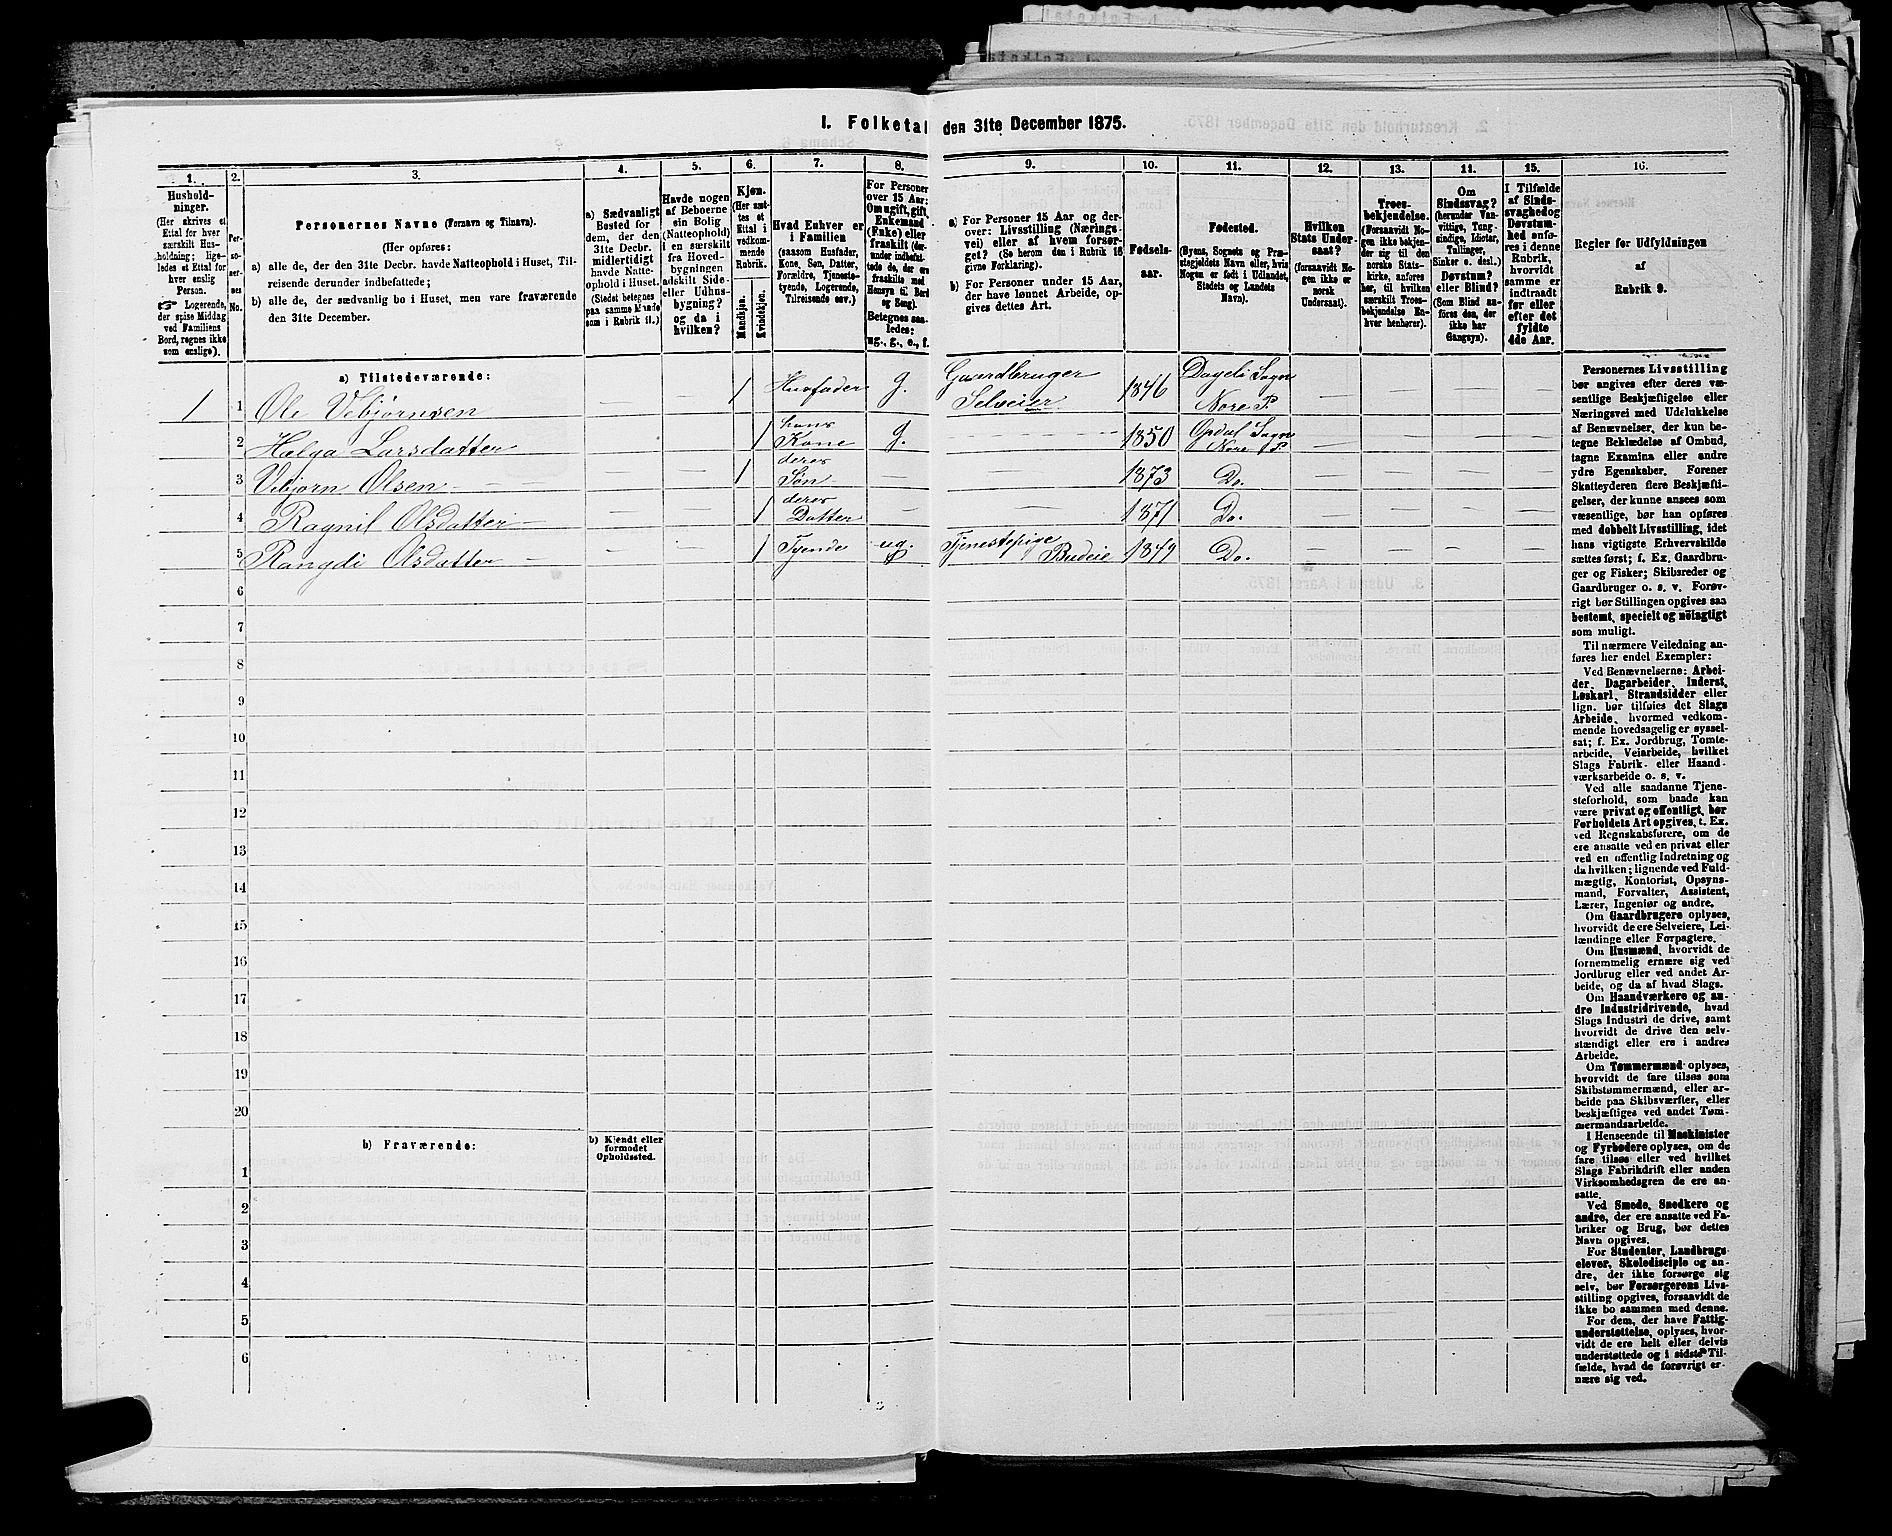 I. Folketal den 31te December 1875.
1.
Hushold-
ninger.
(Her skrives et
Ettal for hver
særskilt Hus-
holdning; lige-
ledes et Ettal for
hver enslig
Person.
☞ Logerende,
der spise Middag
ved Familiens
Bord, regnes ikke
som enslige).
2.
Per-
so-
ner-
nes
No.
3.
Personernes Navne (Fornavn og Tilnavn).
(Her opføres:
a) alle de, der den 31te Decbr. havde Natteophold i Huset, Til-
reisende derunder indbefattede;
b) alle de, der sædvanlig bo i Huset, men vare fraværende
den 31te December.
4.
a) Sædvanligt
Bosted for
dem, der den
31te Decbr.
midlertidigt
havde Natte-
ophold i Huset.
(Stedet betegnes
paa samme Maade
som i Rubrik 11.)
5.
Havde nogen
af Beboerne
sin Bolig
(Natteophold)
i en særskilt
fra Hoved-
bygningen
adskilt Side-
eller Udhus-
bygning?
og da i
hvilken?
6.
Kjøn.
(Her sæt-
tes et
Ettal i
vedkom-
mende
Rubrik.
Mandkjøn.
Kvindekjøn.
7.
Hvad Enhver er
i Familien
(saasom Husfader,
Kone, Søn, Datter,
Forældre, Tjeneste-
tyende, Logerende,
Tilreisende osv.)
8.
For Personer
over 15 Aar:
Om ugift, gift,
Enkemand
(Enke) eller
fraskilt (der-
under indbefat-
tede de, der ere
fraskilte med
Hensyn til Bord
og Seng).
Betegnes saa-
ledes:
ug., g., e., f.
9.
a) For Personer 15 Aar og der-
over: Livsstilling (Nærings-
vei) eller af hvem forsør-
get? (Se herom den i Rubrik 16
givne Forklaring).
b) For Personer under 15 Aar,
der have lønnet Arbeide, op-
gives dettes Art.
10.
Fødsels-
aar.
11.
Fødested.
(Byens, Sognets og Præ-
stegjeldets Navn eller, hvis
Nogen er født i Udlandet,
Stedets og Landets
Navn).
12.
Hvilken
Stats Under-
saat?
(forsaavidt No-
gen ikke er
norsk
Undersaat).
13.
Troes-
bekjendelse.
(Forsaavidt No-
gen ikke bekjen-
der sig til den
norske Stats-
kirke, anføres
her, til hvilken
særskilt Troes-
bekjendelse En-
hver henhører).
14.
Om
Sindssvag?
(herunder Van-
vittige, Tung-
sindige, Idioter,
Tullinger,
Sinker o. desl.)
Døvstum?
eller Blind?
(Som Blind an-
føres den, der
ikke har
Gangsyn).
15.
I Tilfælde
af Sinds-
svaghed og
Døvstum-
hed anfø-
res i denne
Rubrik,
hvorvidt
samme er
indtraadt
før eller
efter det
fyldte
4de Aar.
16.
Regler for Udfyldningen
af
Rubrik 9.
a) Tilstedeværende:
1 1 Ole Vebjørnsen — — 1 Husfader g. Gaardbruger Selveier 1846 Dagali Sogn Nore P.
2 Helga Larsdatter — — 1 hans Kone g. — 1850 Opdal Sogn Nore P.
3 Vebjørn Olsen — — 1 deres Søn — 1873 Do.
4 Ragnil Olsdatter — — 1 deres Datter — — 1871 Do.
5 Rangdi Olsdatter — — 1 Tyende ug. Tjenestepige Budeie 1849 Do.
6
7
8
9
10
11
12
13
14
15
16
17
18
19
20
b) Fraværende:
b) Kjendt eller
formodet
Opholdssted.
1
2
3
4
5
6
Personernes Livsstilling
bør angives efter deres væ-
sentlige Beskjæftigelse eller
Næringsvei med Udelukkelse
af Benævnelser, der kun be-
tegne Beklædelse af Ombud,
tagne Examina eller andre
ydre Egenskaber. Forener
Skatteyderen flere Beskjæfti-
gelser, der kunne ansees som
væsentlige, bør han opføres
med dobbelt Livsstilling, idet
hans vigtigste Erhvervskilde
sættes først; f. Ex. Gaardbru-
ger og Fisker; Skibsreder og
Gaardbruger o. s. v. Forøv-
rigt bør Stillingen opgives saa
bestemt, specielt og nöiagtigt
som muligt.
Til nærmere Veiledning an-
føres her endel Exempler:
Ved Benævnelserne: Arbei-
der, Dagarbeider, Inderst,
Løskarl, Strandsidder eller
lign. bør tilføies det Slags
Arbeide, hvormed vedkom-
mende hovedsagelig er syssel-
sat; f. Ex. Jordbrug, Tomte-
arbeide, Veiarbeide, hvilket
Slags Fabrik- eller Haand-
værksarbeide o. s. v.
Ved alle saadanne Tjene-
steforhold, som baade kan
være privat og offentligt, bør
Forholdets Art opgives, t. Ex.
ved Regnskabsførere, om de
ere ansatte ved en privat eller
ved en offentlig Indretning og
da hvilken; lignende ved Fuld-
mægtig, Kontorist, Opsyns-
mand, Forvalter, Assistent,
Lærer, Ingeniør og andre.
Om Gaardbrugere oplyses,
hvorvidt de ere Selveiere, Lei-
lændinge eller Forpagtere.
Om Husmænd, hvorvidt de
fornemmelig ernære sig ved
Jordbrug eller ved andet Ar-
beide, og da af hvad Slags.
Om Haandværkere og an-
dre Industridrivende, hvad
Slags Industri de drive, samt
hvorvidt de drive den selv-
stændigt eller ere i andres
Arbeide.
Om Tømmermænd oplyses,
hvorvidt de fare tilsøs som
Skibstømmermænd, eller ar-
beide paa Skibsværfter, eller
beskjæftiges ved andet Tøm-
mermandsarbeide.
I Henseende til Maskinister
og Fyrbødere oplyses, om de
fare tilsøs eller ved hvilket
Slags Fabrikdrift eller anden
Virksomhedsgren de ere an-
satte.
Ved Smede, Snedkere og
andre, der ere ansatte ved Fa-
briker og Brug, bør dettes
Navn opgives.
For Studenter, Landbrugs-
elever, Skoledisciple og an-
dre, der ikke forsørge sig
selv, bør Forsørgerens Livs-
stilling opgives, forsaavidt de
ikke bo sammen med denne.
For dem, der have Fattig-
understøttelse, oplyses, hvor-
vidt de ere helt eller delvis
understøttede og i sidste Til-
fælde, hvad de forøvrigt er-
nære sig ved.